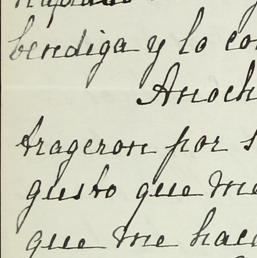 bendiga y lo co
Anoch
trageron por s
gusto que me
que me hace